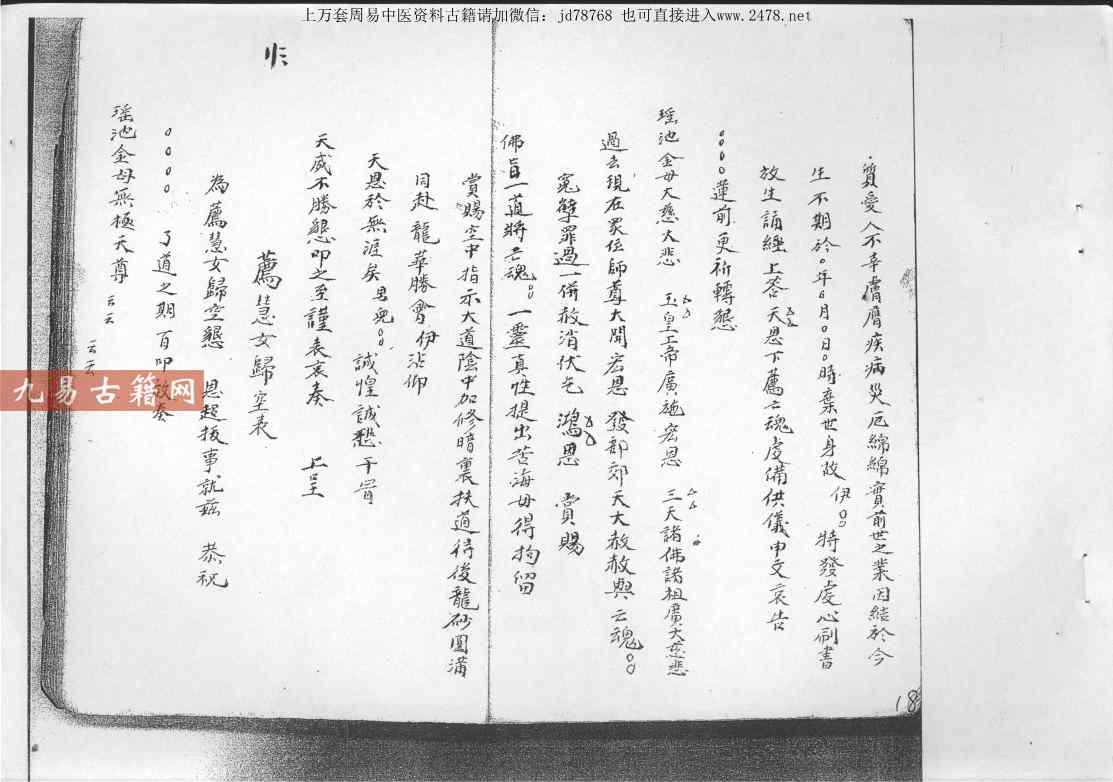 上万套周易中医资料古籍请加微信：jd78768 也可直接进入www.2478.net
質愛人不幸膚膺疾病災厄綿綿實前世之業因結於今
生不期於○年○月○日○時棄世身故 伊○○ 特發虔心刷書
放生誦經上答天恩下薦亡魂虔備供儀申文哀告
○○○○蓮前更祈轉懇
瑶池金母大慈大悲 玉皇上帝廣施宏恩 三天諸佛諸祖廣大慈悲
過去現在眾位師尊大開宏恩 發部郊天大赦赦與亡魂○○
冤孽罪過一併赦消伏乞 鴻恩 賞賜
佛旨一道將亡魂○○一靈真性提出苦海毋得拘留
賞賜空中指示大道陰中加修暗裏扶過待後龍砂圓滿
同赴龍華勝會 伊沾仰
天恩於無涯矣 男兔○○ 誠惶誠懇 干冐
天威不勝懇叩之至謹表哀奏 上呈
薦慧女歸空表
為薦慧女歸空懇 恩超拔事就兹 恭祝
○○○○ 了道之期百叩啟奏
瑶池金母無極天尊 云云
云云
18
九易古籍网